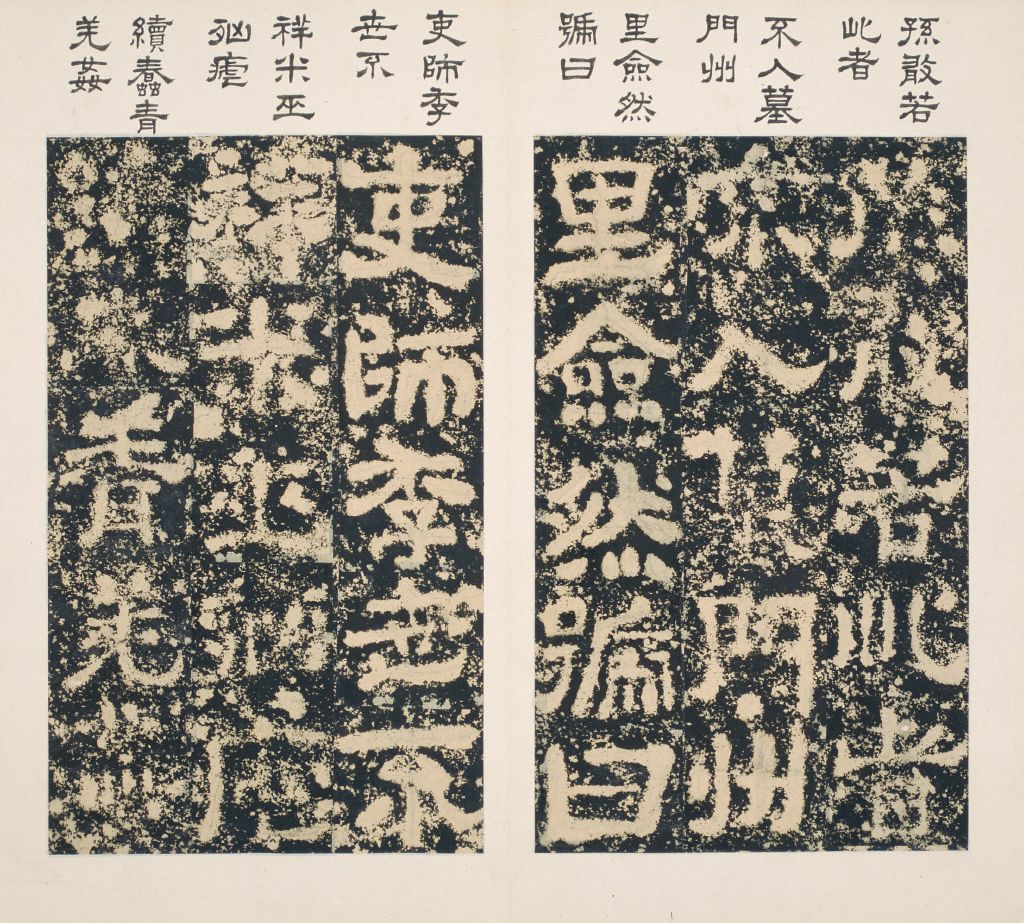 孫敢若
此者
不入墓
門州
里僉然
號曰
吏師季
世不
祥米巫
㓙瘧
續蠢青
羌姦
孫敢若此者
不入墓門州
里僉然號曰
吏師季世不
祥米巫㓙瘧
青羌